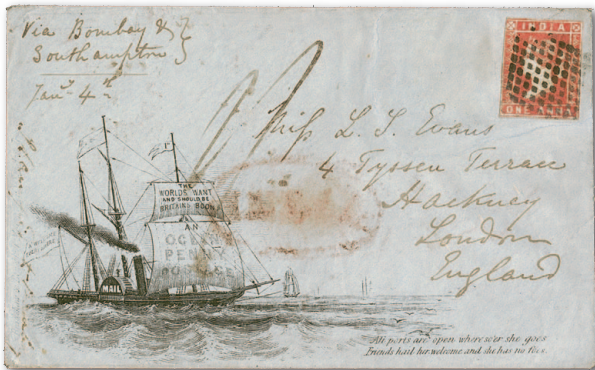 Via Bombay &
Southampton
Jany 4th
INDIA
ONE ANNA
Miss L. S. Evans
4 Tyssen Terrace
Hackney
London
England
THE
WORLDS WANT
AND SHOULD BE
BRITAINS BOON
AN
OCEAN
PENNY
POSTAGE
All ports are open where'er she goes
Friends hail her welcome and she has no Foes.